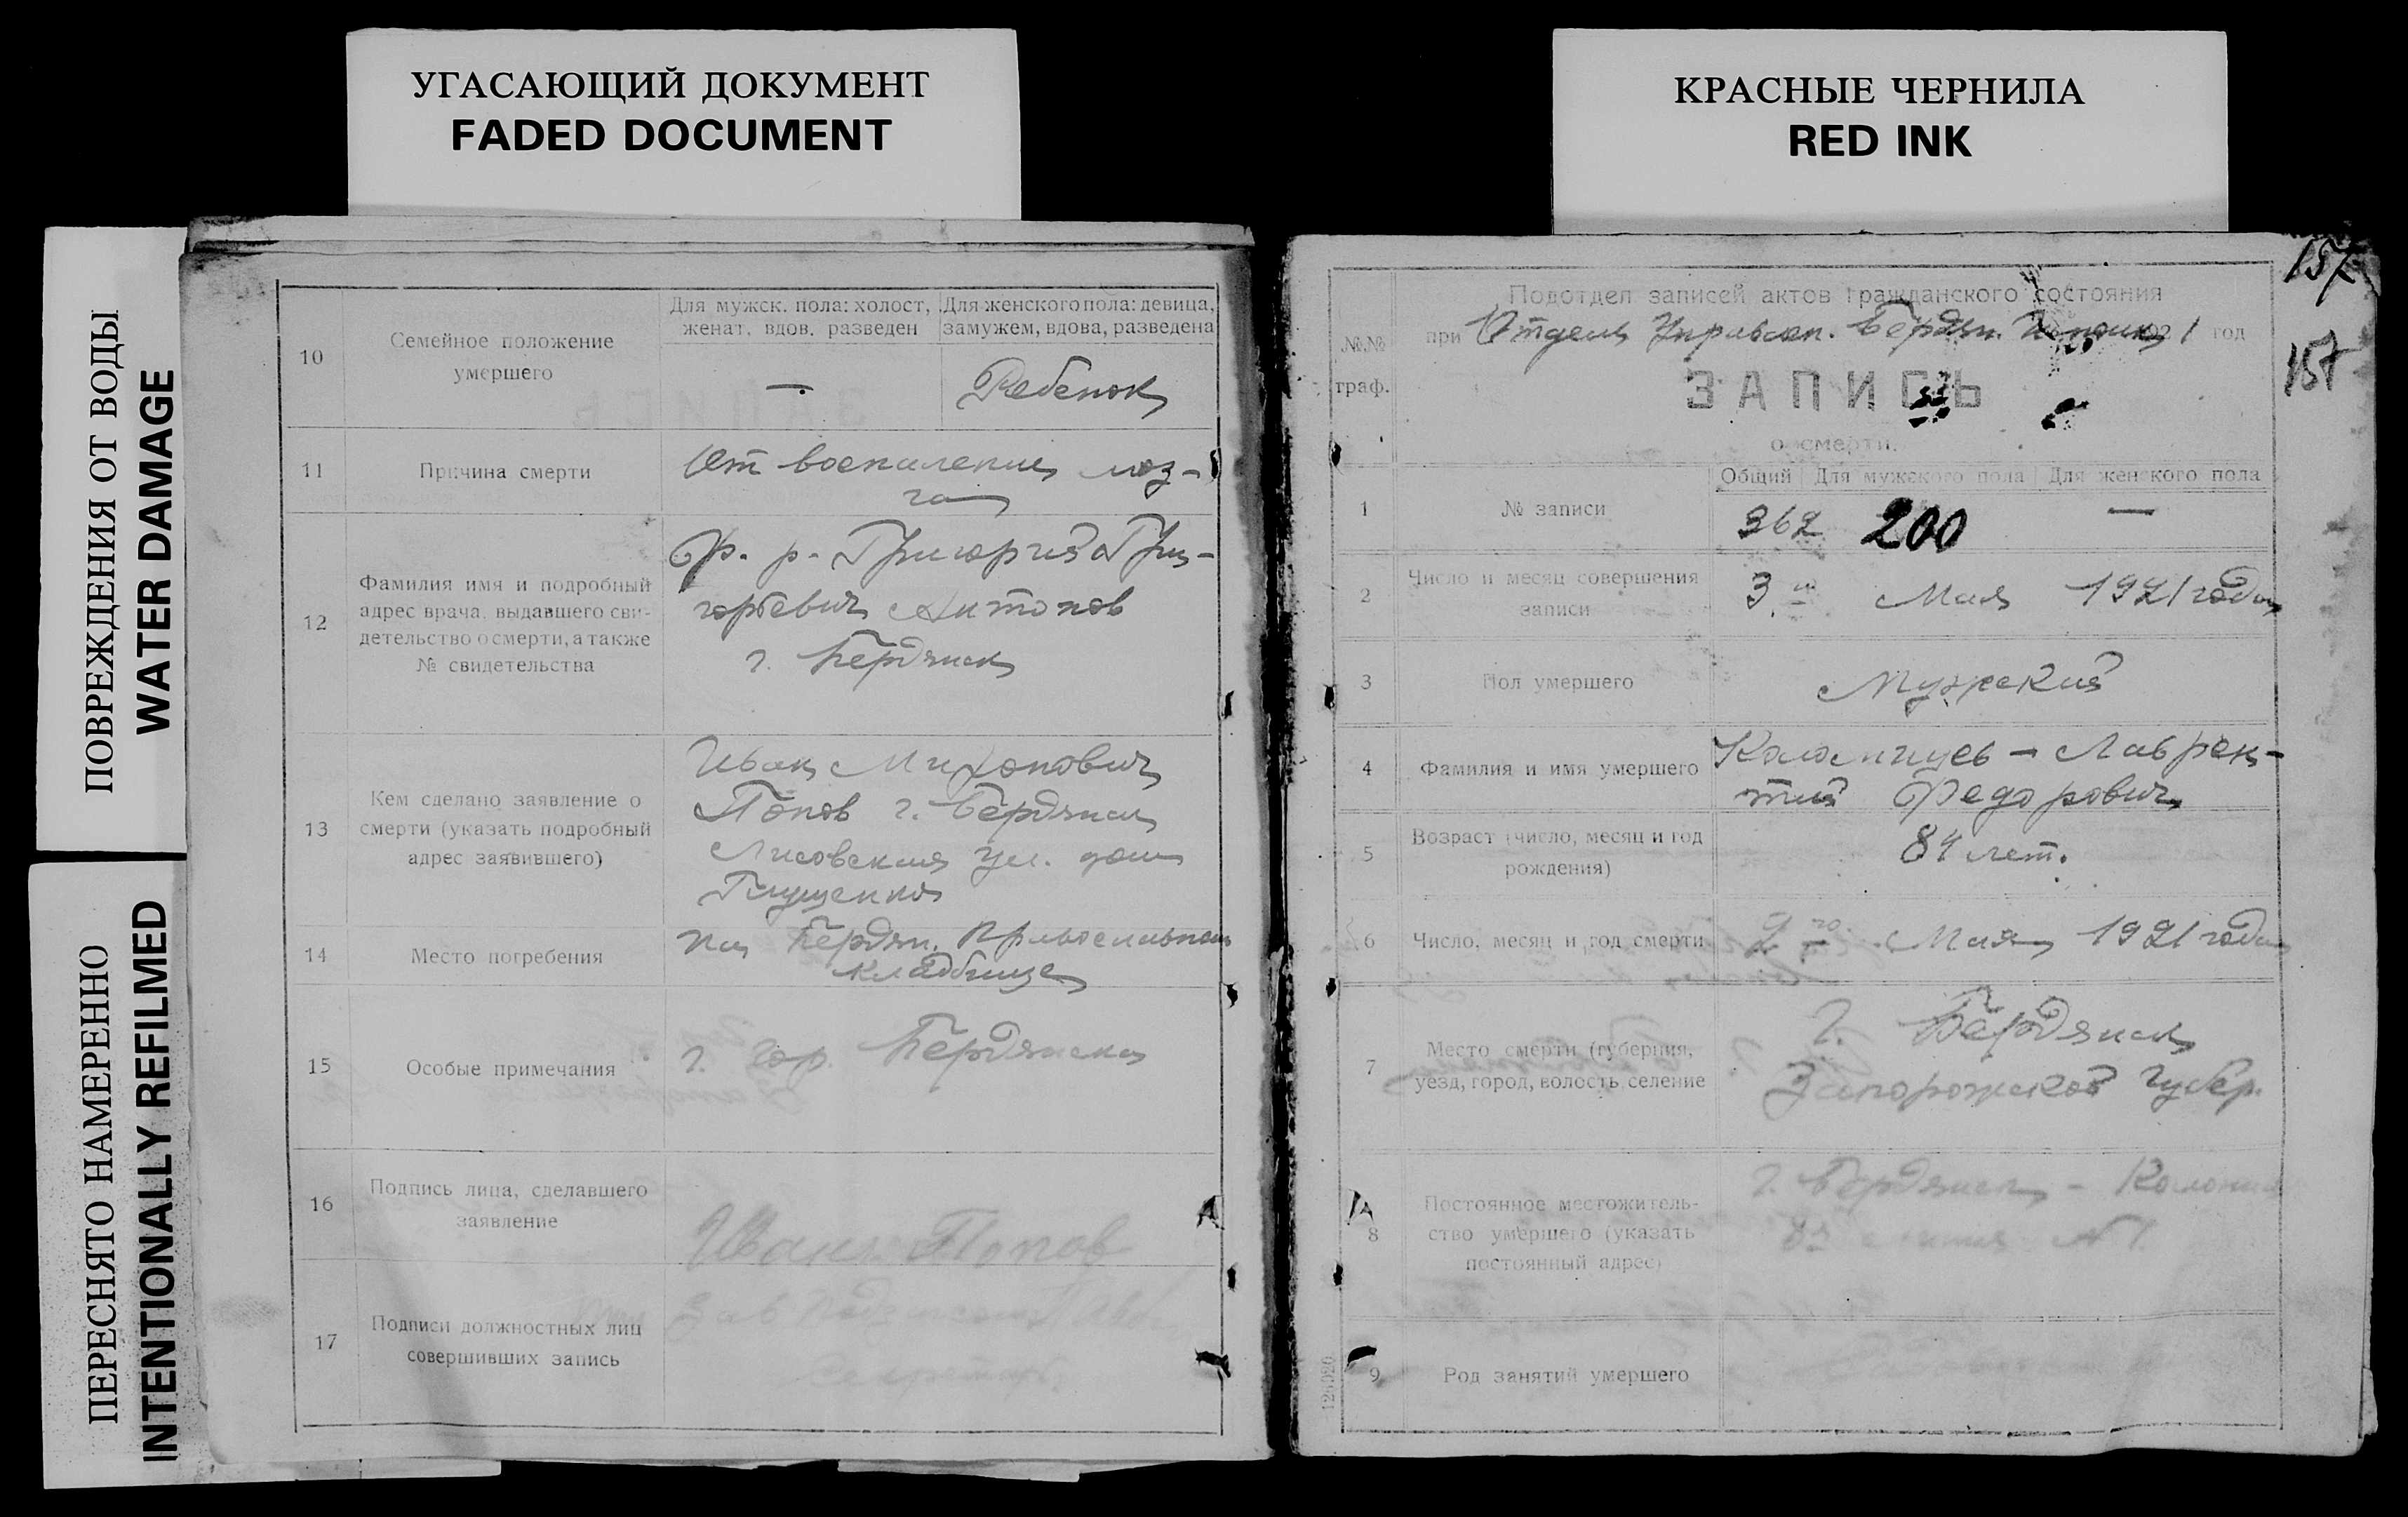 УГАСАЮЩИЙ ДОКУМЕНТ
FADED DOCUMENT
КРАСНЫЕ ЧЕРНИЛА
RED INK
ПОВРЕЖДЕНИЯ ОТ ВОДЫ
WATER DAMAGE
ПЕРЕСНЯТО НАМЕРЕННО
INTENTIONALLY REFILMED
10
Семейное положение
умершего
Для мужск. пола: холост,
женат, вдов, разведен
Для женского пола: девица,
замужем, вдова, разведена
—
Ребенок
11
Причина смерти
От воспаления моз-
га
12
Фамилия имя и подробный
адрес врача, выдавшего сви-
детельство о смерти, а также
№ свидетельства
Гри-
горьевич Антонов
г. Бердянск
13
Кем сделано заявление о
смерти (указать подробный
адрес заявившего)
Иван
Попов г. Бердянск
Лисовская ул. дом
Глущенко
14
Место погребения
на Бердян. Православном
кладбище
15
Особые примечания
г. гор. Бердянска
16
Подпись лица, сделавшего
заявление
Иван Попов
17
Подписи должностных лиц
совершивших запись
Зав
Секретарь
157
157
№№
граф.
Подотдел записей актов гражданского состояния
при Отделе Управлен. Бердян. 1921 год
ЗАПИСЬ
о смерти.
Общий
Для мужского пола
Для женского пола
1
№ записи
362
200
—
2
Число и месяц совершения
записи
3го Мая 1921 года
3
Пол умершего
Мужской
4
Фамилия и имя умершего
Коломийцев - Лаврен-
тий Федорович
5
Возраст (число, месяц и год
рождения)
84 лет.
6
Число, месяц и год смерти
2го Мая 1921 года
7
Место смерти (губерния,
уезд, город, волость, селение
г. Бердянск
Запорожской губер.
8
Постоянное местожитель-
ство умершего (указать
постоянный адрес)
г. Бердянск - Колония
линия №
9
Род занятий умершего